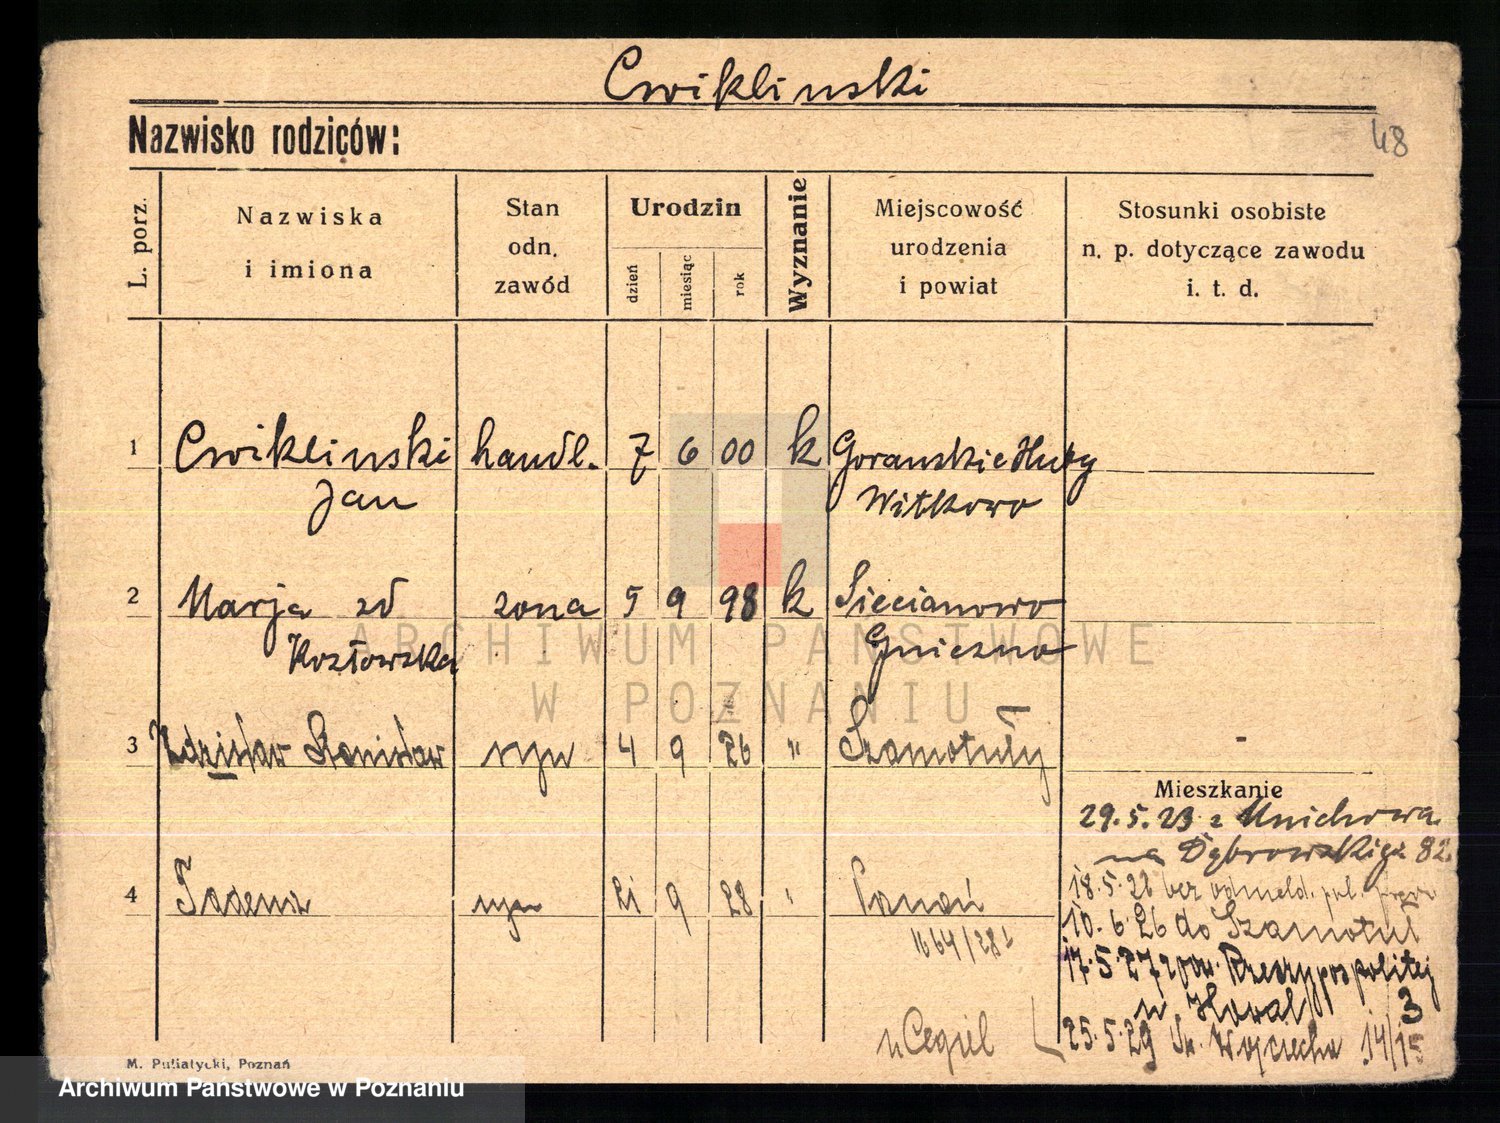 Cwiklinski
Nazwisko rodziców:
48
L. porz.
Nazwiska
i imiona
Stan
odn.
zawód
Urodzin
dzień
miesiąc
rok
Wyznanie
Miejscowość
urodzenia
i powiat
Stosunki osobiste
n. p. dotyczące zawodu
i. t. d.
1 Cwiklinski handl. 7 6 00 k Goranskie Huby
Jan Witkowo
2 Marja zd zona 5 9 98 k Siecianowo
Kozłowska Gniezno
3 Zdzisław Stanisław syn 4 9 26 " Szamotuły
Mieszkanie
29.5.23 z Unichowa
na Dąbrowskiego 82.
4 Tadeusz syn 21 9 28 " Poznań
18.5.26 bez odmeld. pol.
10.6.26 do Szamotuł
1664/28
17.5.27 Rzeczypospolitej
u Kowal 3
u Cegiel
25.5.29 Św. Wojciecha 14/15
M. Putiatycki, Poznań
ARCHIWUM PAŃSTWOWE
W POZNANIU
Archiwum Państwowe w Poznaniu